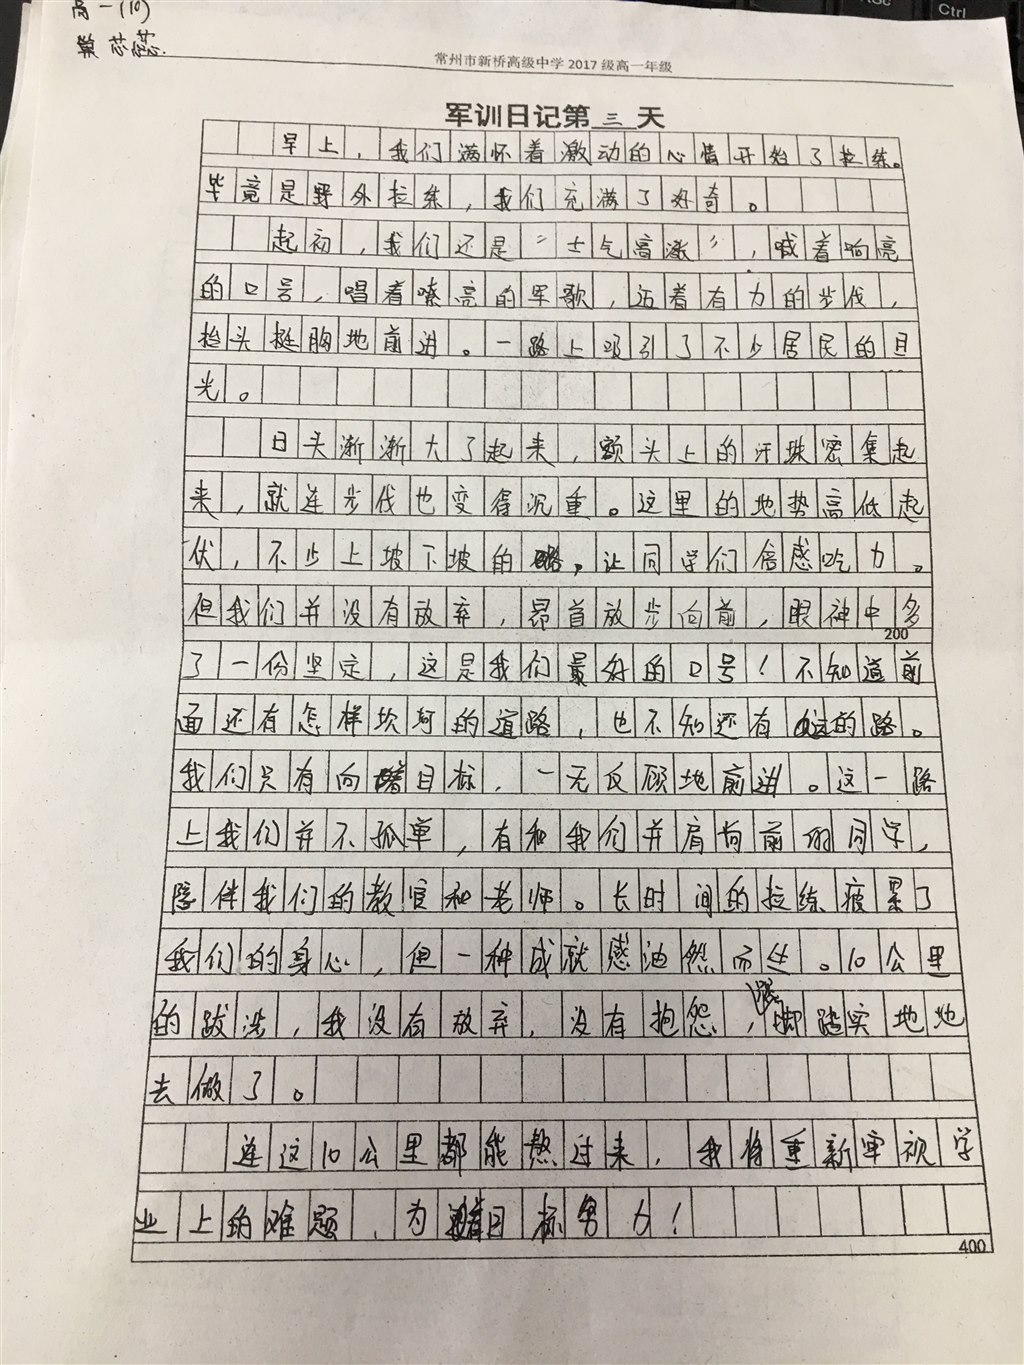 高一(10)
常州市新桥高级中学 2017 级高一年级
军训日记第 三 天
早上，我们满怀着激动的心情开始了拉练。
毕竟是野外拉练，我们充满了好奇。
起初，我们还是“士气高涨”，喊着响亮
的口号，唱着嘹亮的军歌，迈着有力的步伐，
抬头挺胸地前进。一路上吸引了不少居民的目
光。
日头渐渐大了起来，额头上的汗珠密集起
来，就连步伐也变得沉重。这里的地势高低起
伏，不少上坡下坡的路，让同学们倍感吃力。
但我们并没有放弃，昂首放步向前，眼神中多
200
了一份坚定，这是我们最好的口号！不知道前
面还有怎样坎坷的道路，也不知还有的路。
我们只有向着目标，一无反顾地前进。这一路
上我们并不孤单，有和我们并肩向前的同学，
陪伴我们的教官和老师。长时间的拉练疲累了
我们的身心，但一种成就感油然而生。10公里
的跋涉，我没有放弃，没有抱怨，脚踏实地地
去做了。
连这10公里都能熬过来，我将重新审视学
业上的难题，为着目标努力！
400